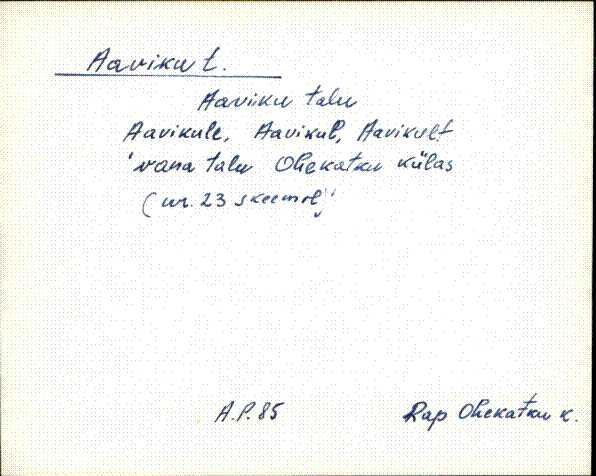 Aaviku t.
Aaviku talu
Aavikule, Aavikul, Aavikult
'vana talu Ohekatku külas
(nr. 23 skeemil)'
A.P. 85
Rap Ohekatku k.